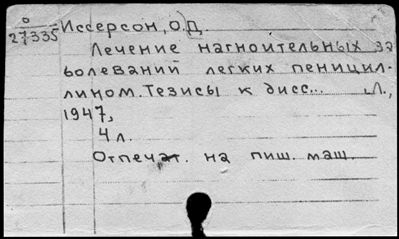 О
27335
Иссерсон, О.Д.
Лечение нагноительных за
болеваний легких пеницил-
лином. Тезисы к дисс... Л.,
1947,
4 л.
Отпечат. на пиш. маш.